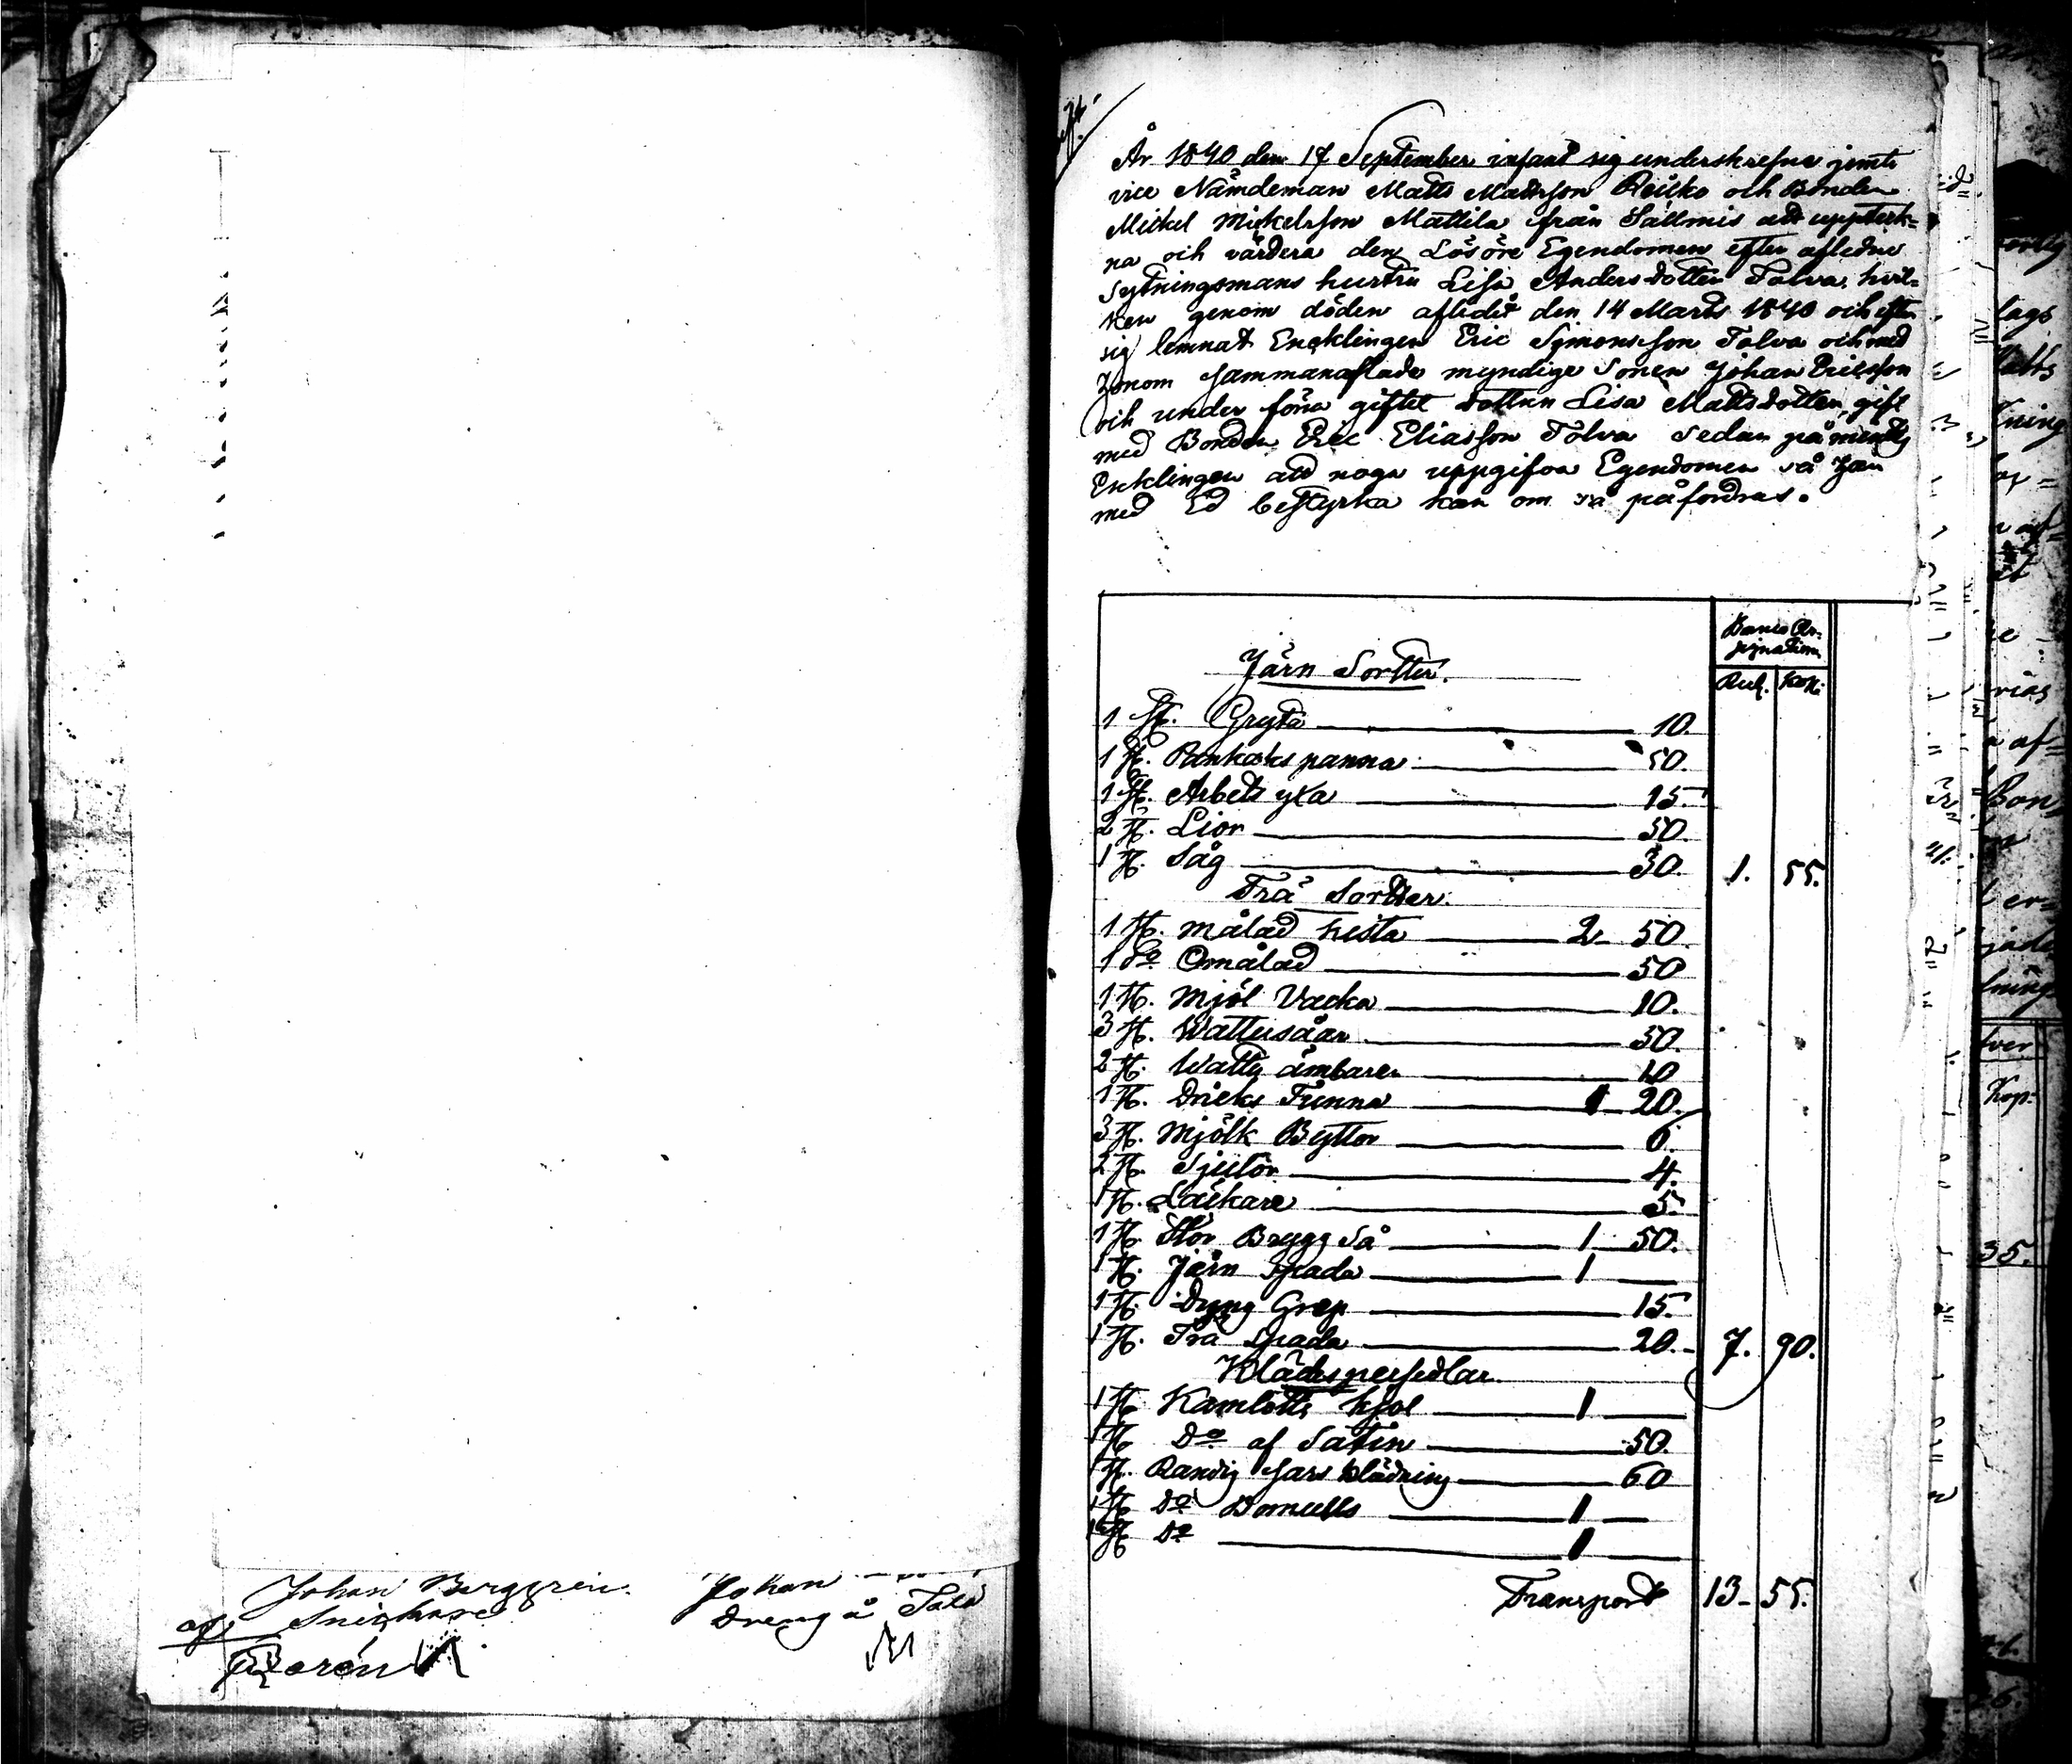 Johan Berggren. Johan
Snickare Dreng å
År 1840 den 17 September infant sig underskrefne jemte
vice Nämdeman Matts Mattsson Reisko och Bonden
Mickel Mickelsson Mattila från Sällmis att uppteck-
na och värdera den Lösöre Egendomen efter afledne
Sytningsmans hustru Lisa Andersdotter Tolva, hvil-
ken genom döden afledit den 14 Marts 1840 och efter
sig lemnat Encklingen Eric Simonsson Tolva och med
honom sammanaflade myndige Sonen Johan Ericsson
och under förra giftet dottren Lisa Mattsdotter, gift
med Bonden Eric Eliasson Tolva Sedan påmintes
Encklingen att noga uppgifva Egendomen så han
med Ed bestyrka kan om så påfordras.
Banco As-
signationer
Järn Sortter.
Rub. Kop.
1 st. Gryta 10.
1 st. Pankaks panna 50.
1 st. Arbets yxa 15.
2 st. Lior 50.
1 st. Såg 30. 1. 55.
Trä Sortter.
1 st. målad kista 2 50.
1 do Omålad 50
1 st. Mjöl Vacka 10.
3 st. Wattusåar 50.
2 st. Wattu ämbaren 10
1 st. Dricks Tunna 1 20.
3 st. Mjölk Byttor 6.
2 st. 4.
1 st. 5.
1 st. Stor Brygg Så 1 50.
1 st. Järn Spada 1
1 st. Dyng Grep 15.
1 st. Trä Spada 20. 7. 90.
Klädespersedlar.
1 st Kamlotts kjol 1
1 st Do af Satin 50.
1 st. Randig sars klädning 60
1 st Do Bomulls 1
1 st Do 1
Transport 13 55.